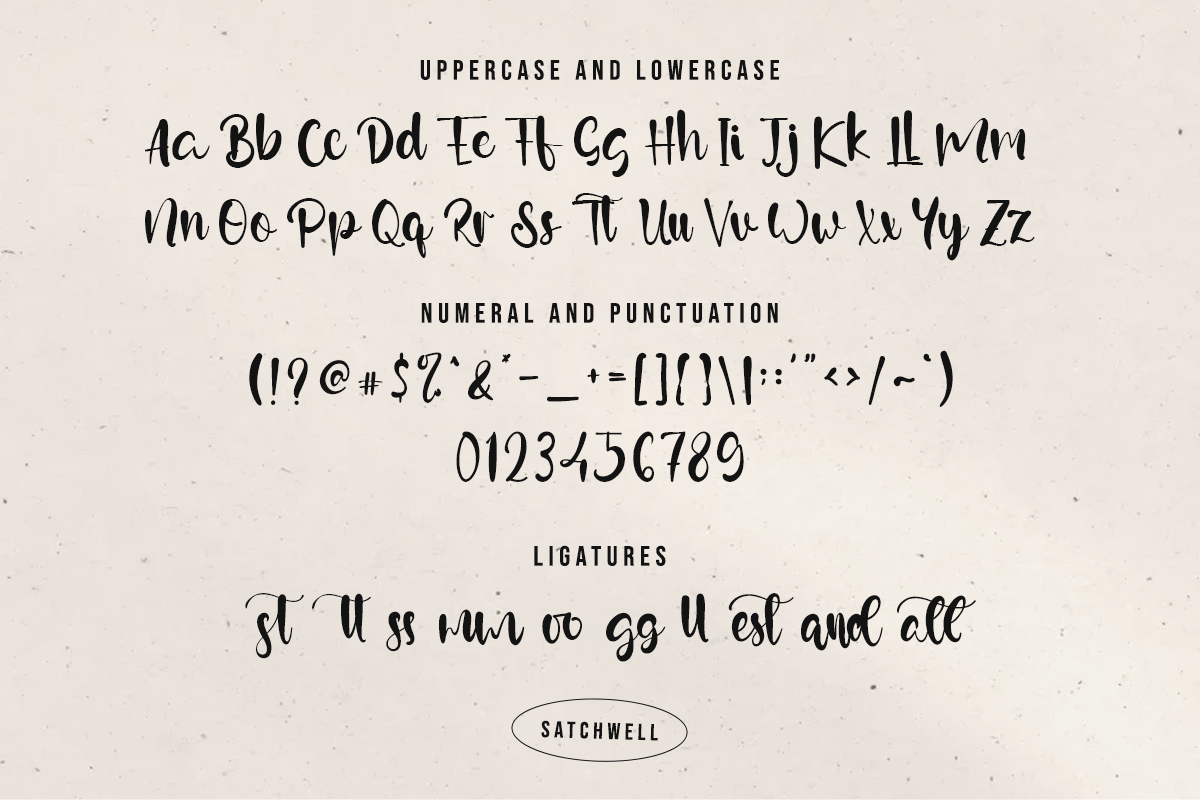 UPPERCASE AND LOWERCASE
Aa Bb Cc Dd Ee Ff Gg Hh Ii Jj Kk Ll Mm
Nn Oo Pp Qq Rr Ss Tt Uu Vv Ww Xx Yy Zz
NUMERAL AND PUNCTUATION
(!?@#$%^&*-_+=[]{}\|;:'"<>/~`)
0123456789
LIGATURES
st tt ss mm oo gg ll est and all
SATCHWELL